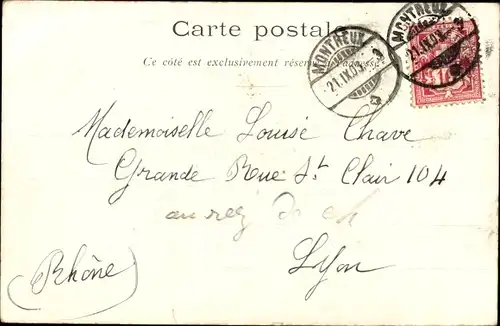 Carte postale
Ce côté est exclusivement réservé à l'adresse.
MONTREUX
21.IX.03
MONTREUX
21.IX.03
10
Mademoiselle Louise Chave
Grande Rue St Clair 104
au rez de ch
Lyon
(Rhône)